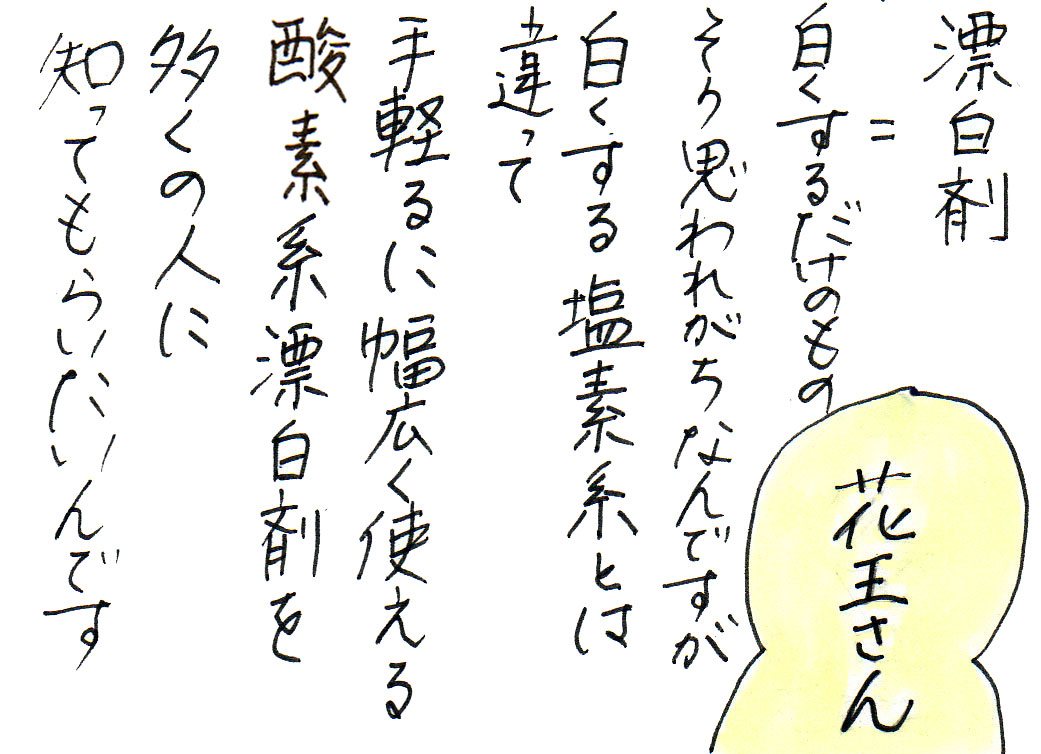 漂白剤
＝
白くするだけのもの
そう思われがちなんですが
白くする塩素系とは
違って
手軽るに幅広く使える
酸素系漂白剤を
多くの人に
知ってもらいたいんです
花王さん